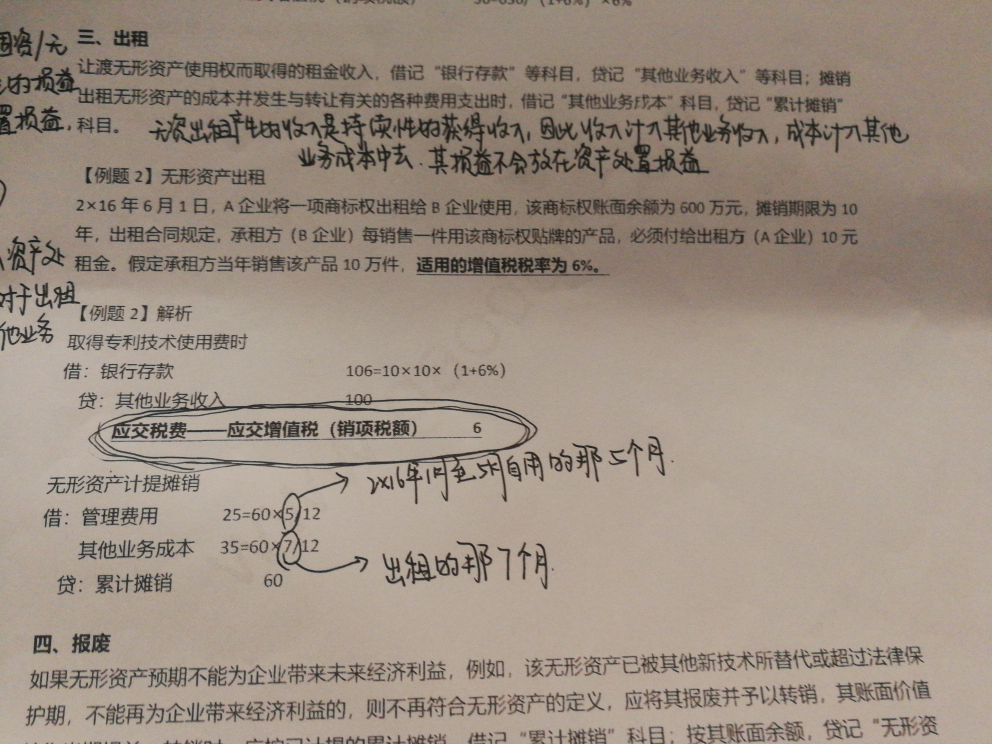 50=830/（1+6%）×6%
三、出租
让渡无形资产使用权而取得的租金收入，借记“银行存款”等科目，贷记“其他业务收入”等科目；摊销
出租无形资产的成本并发生与转让有关的各种费用支出时，借记“其他业务成本”科目，贷记“累计摊销”
科目。
无资出租产生的收入是持续性的获得收入，因此收入计入其他业务收入，成本计入其他
业务成本中去.其损益不会放在资产处置损益
固资/无
的损益
置损益，
资产处
对于出租
他业务
【例题2】无形资产出租
2×16年6月1日，A企业将一项商标权出租给B企业使用，该商标权账面余额为600万元，摊销期限为10
年，出租合同规定，承租方（B企业）每销售一件用该商标权贴牌的产品，必须付给出租方（A企业）10元
租金。假定承租方当年销售该产品10万件，适用的增值税税率为6%。
【例题2】解析
取得专利技术使用费时
借：银行存款 106=10×10×（1+6%）
贷：其他业务收入 100
应交税费——应交增值税（销项税额） 6
2X16年1月至5月自用的那5个月.
无形资产计提摊销
借：管理费用 25=60×5/12
其他业务成本 35=60×7/12
出租的那7个月.
贷：累计摊销 60
四、报废
如果无形资产预期不能为企业带来未来经济利益，例如，该无形资产已被其他新技术所替代或超过法律保
护期，不能再为企业带来经济利益的，则不再符合无形资产的定义，应将其报废并予以转销，其账面价值
转销时，应按已计提的累计摊销，借记“累计摊销”科目；按其账面余额，贷记“无形资